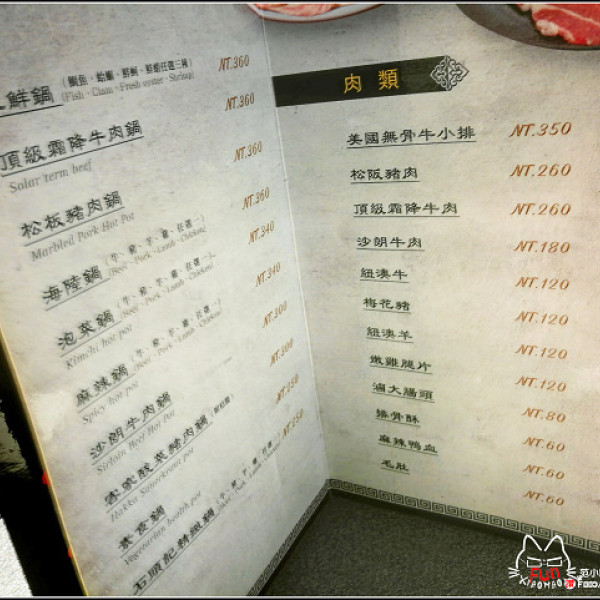 鮮鍋 NT.360
(Fish、Clam、Fresh oyster、Shrimp)
頂級霜降牛肉鍋 NT.360
Solar term beef
松板豬肉鍋 NT.360
Marbled Pork Hot Pot
海陸鍋(牛、豬、羊、雞、任選一) NT.360
(Beef、Pork、Lamb、Chicken)
泡菜鍋(牛、豬、羊、雞、任選一) NT.340
Kimchi hot pot (Beef、Pork、Lamb、Chicken)
麻辣鍋(牛、豬、羊、雞、任選一) NT.340
Spicy hot pot (Beef、Pork、Lamb、Chicken)
沙朗牛肉鍋 NT.300
Sirloin Beef Hot Pot
客家酸菜豬肉鍋 NT.300
Hakka Sauerkraut pot
素食鍋 NT.250
Vegetarian health pot
石頭記精緻鍋 NT.250
肉類
美國無骨牛小排 NT.350
松阪豬肉 NT.260
頂級霜降牛肉 NT.260
沙朗牛肉 NT.180
紐澳牛 NT.120
梅花豬 NT.120
紐澳羊 NT.120
嫩雞腿片 NT.120
滷大腸頭 NT.80
排骨酥 NT.60
麻辣鴨血 NT.60
毛肚 NT.60
FUN
范小